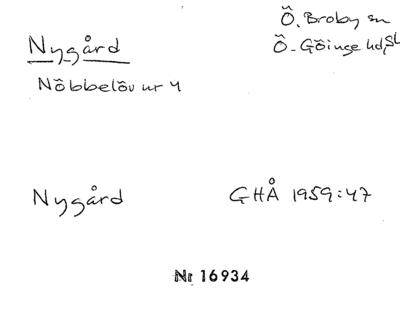 Nygård
Ö. Broby sn
Ö. Göinge hd, Sk
Nöbbelöv nr 4
Nygård
GHÅ 1959:47
Nr 16934